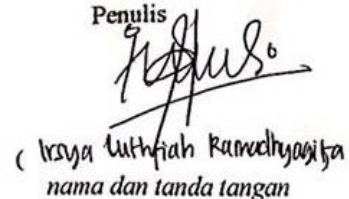 Penulis
( Irsya Luthfiah Ramadhyagita
nama dan tanda tangan